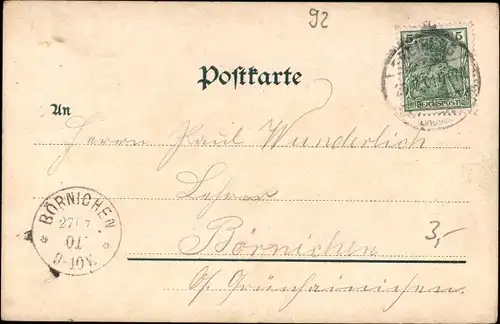 92
5 5
REICHSPOST
Postkarte
An
Herrn Paul Wunderlich
Lehrer
Börnichen
3,-
b/ Grünhainichen
BÖRNICHEN
27 7
01